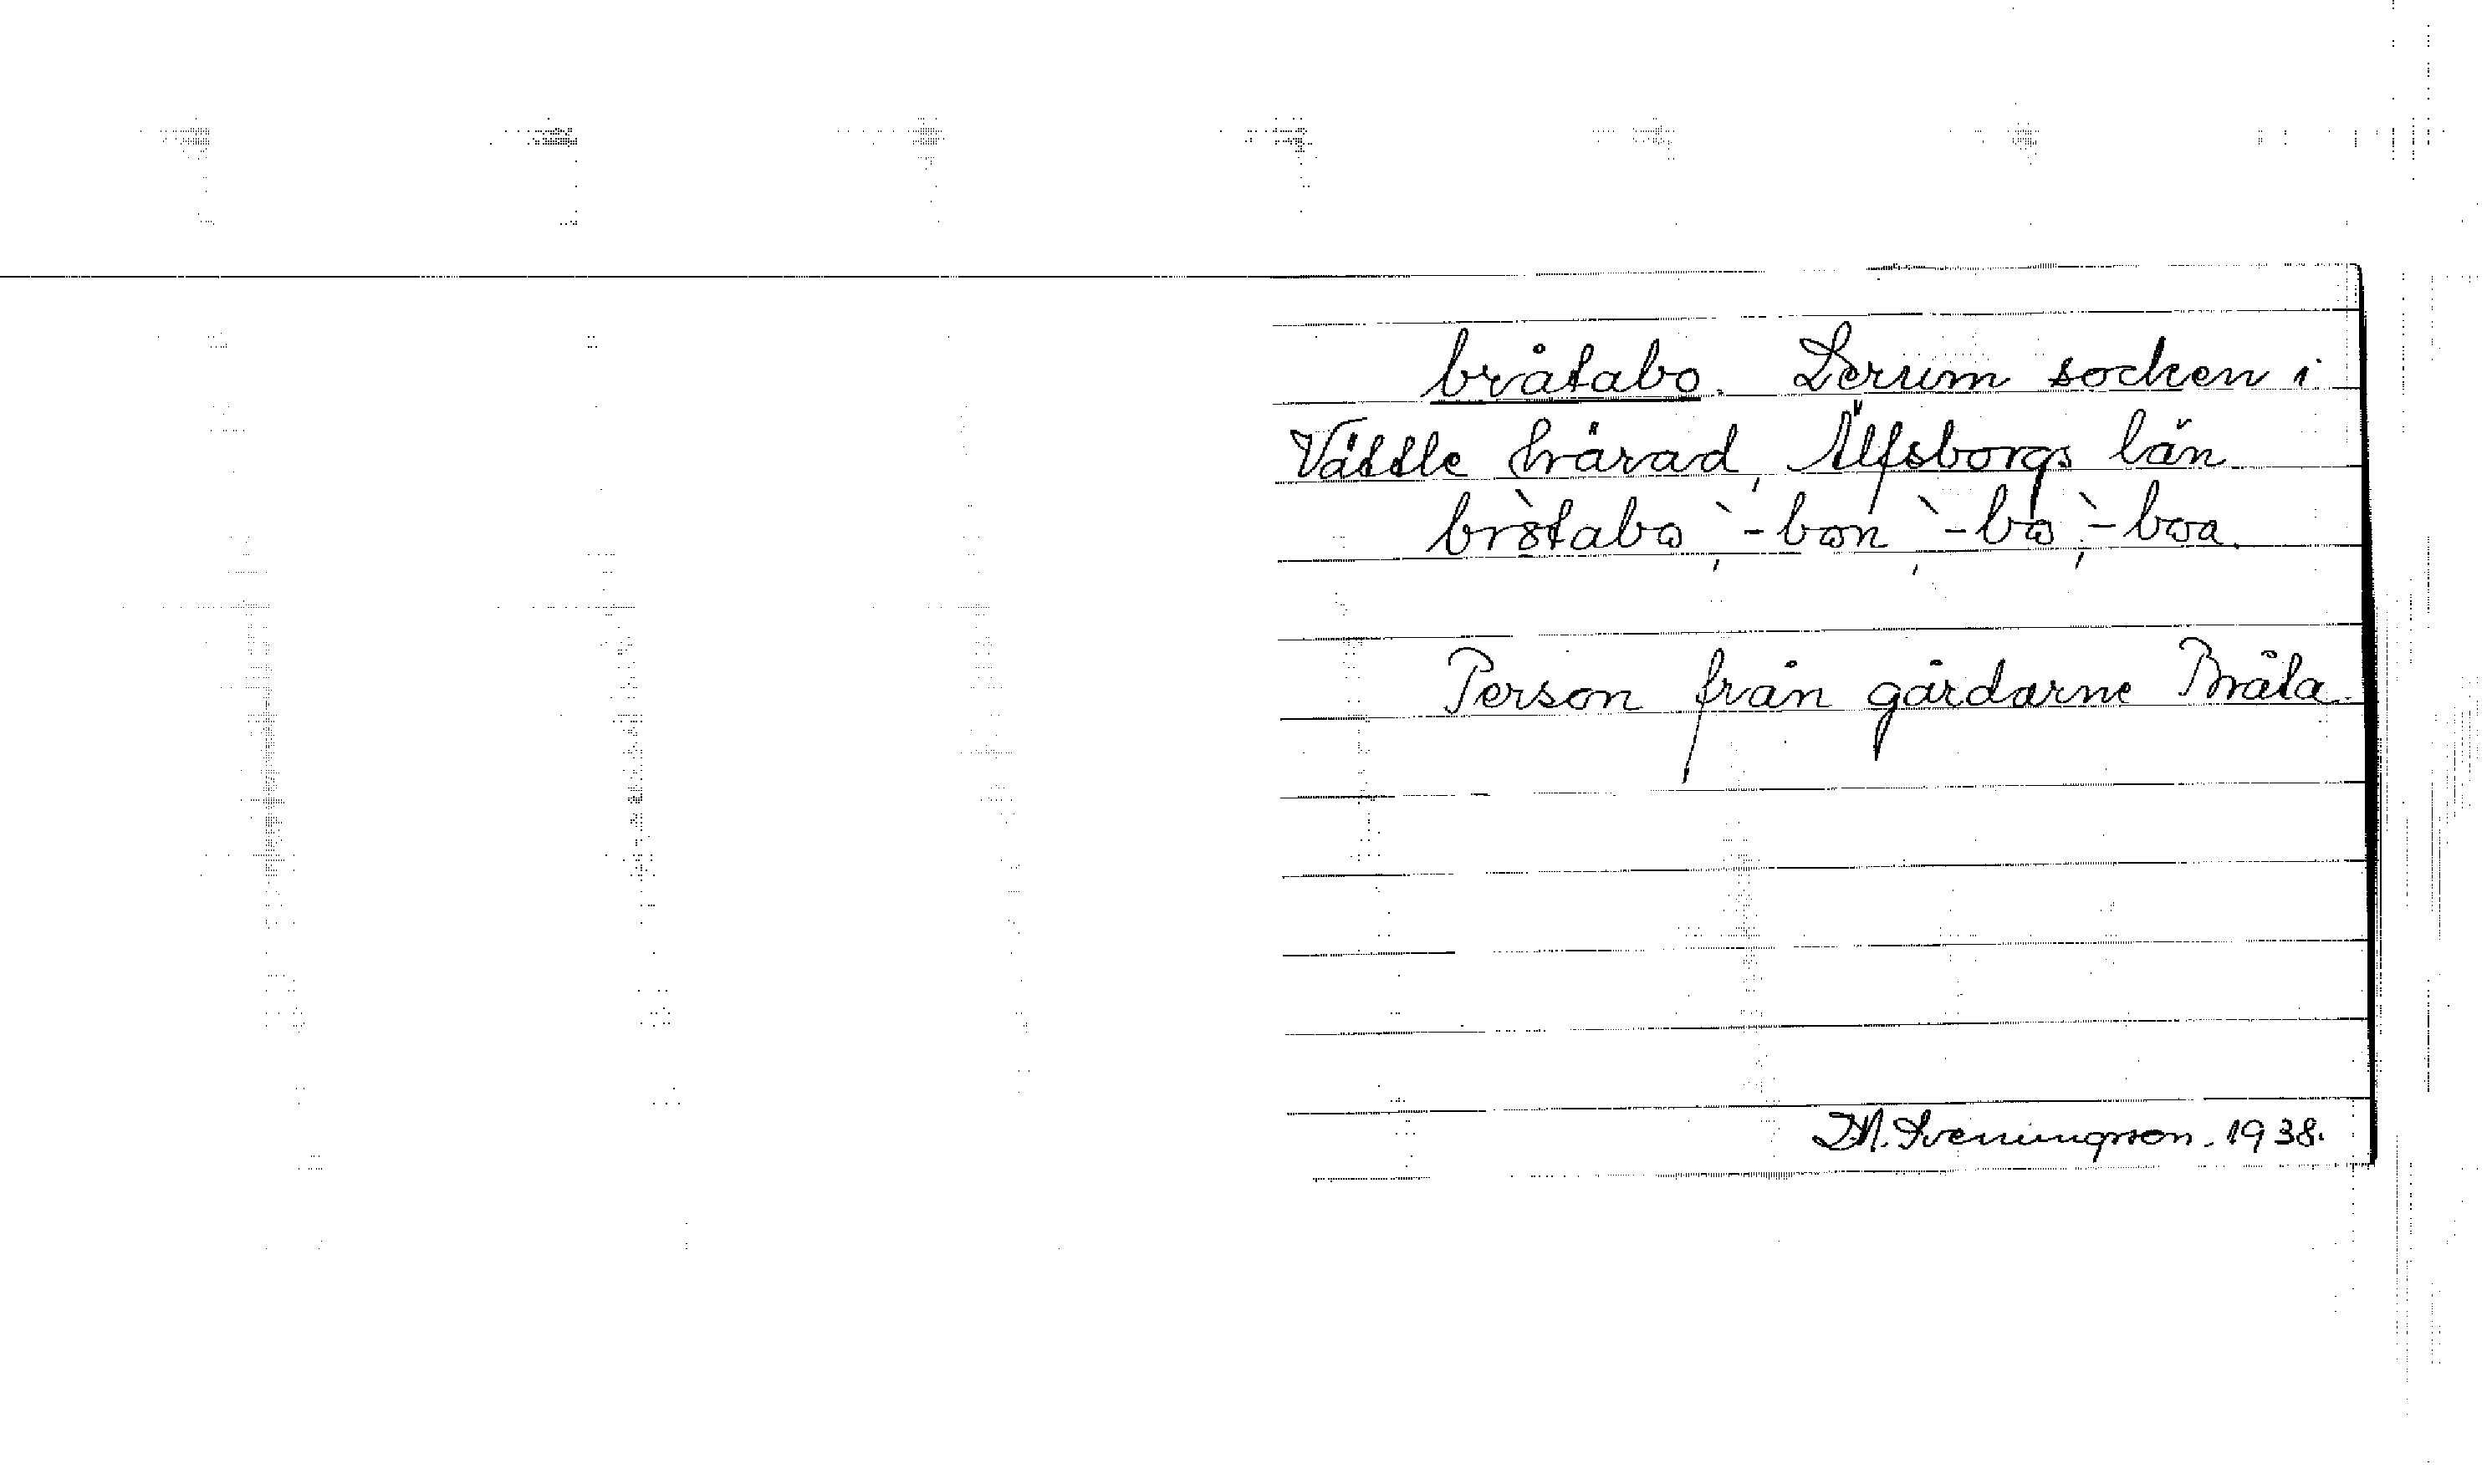 bråtabo. Lerum socken i
Vättle härad, Älfsborgs län
bròtabɷ, `-bɷn, `-bɷ, `-bɷa.
Person från gårdarne Bråta.
D.N. Sveningsson. 1938.